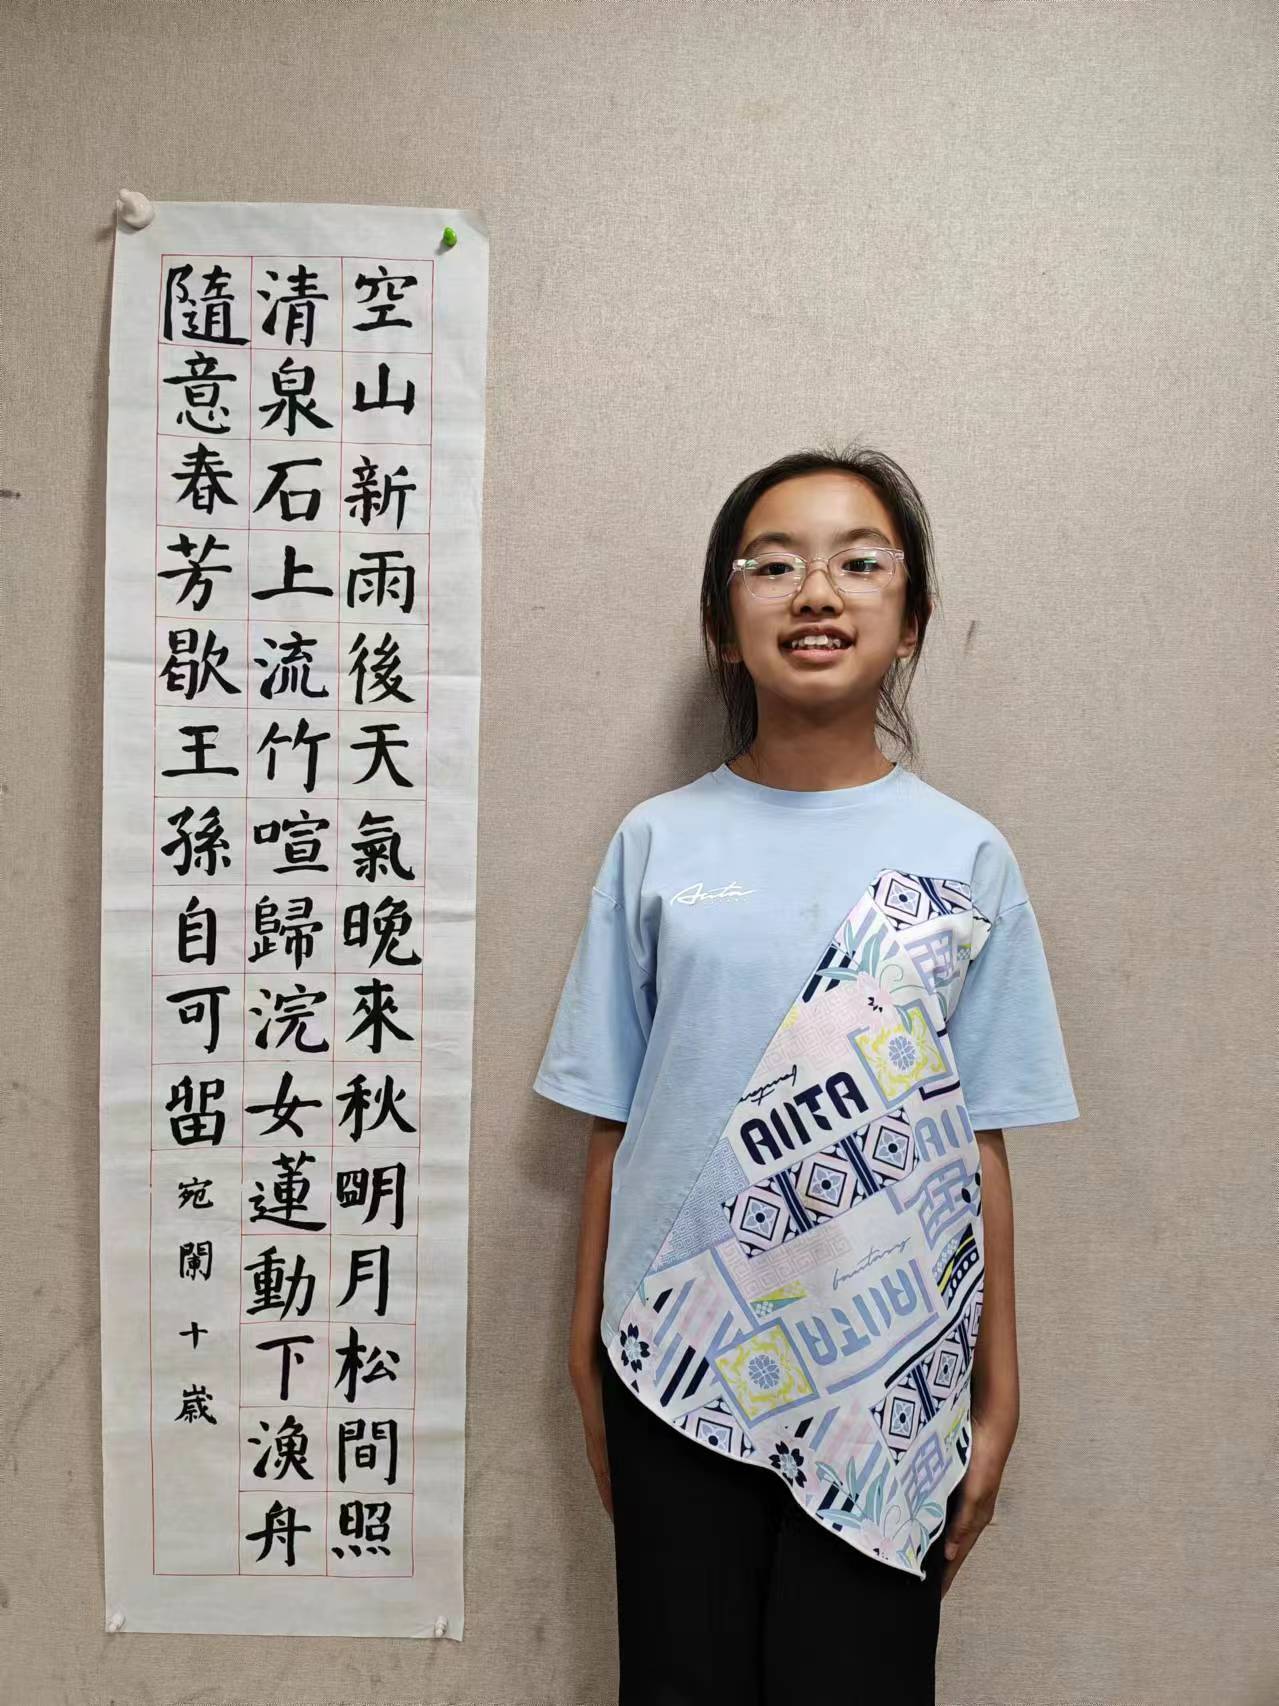 空山新雨後天氣晚來秋明月松間照
清泉石上流竹喧歸浣女蓮動下漁舟
隨意春芳歇王孫自可留宛闌十歲
Anta
fantasy
ANTA
fantasy
ANTA